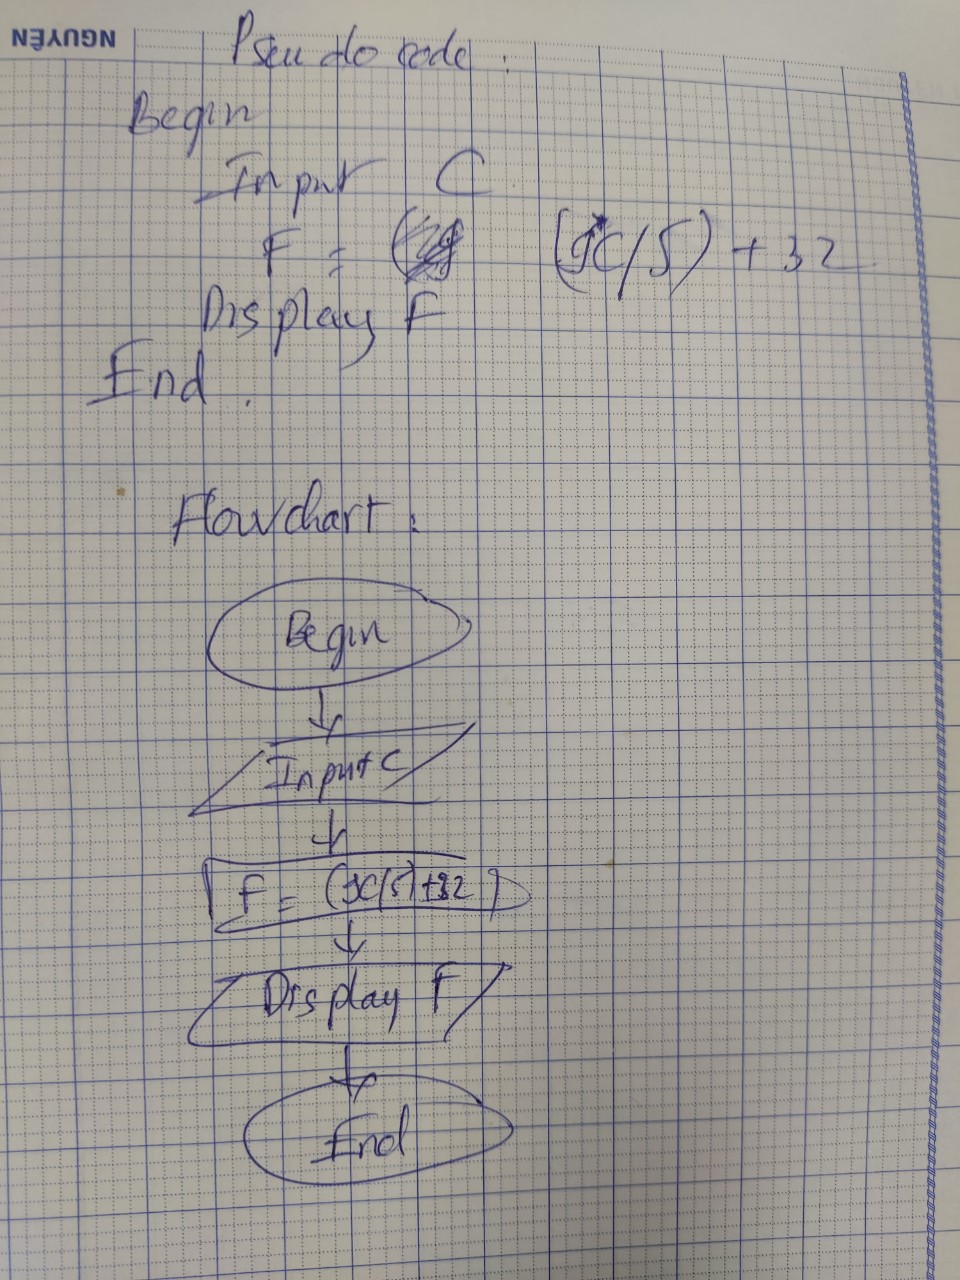 NGUYÊN
Pseudo code :
Begin
Input C
F = (9C/5) + 32
Display F
End.
Flowchart :
Begin
Input C
F = (9C/5)+32
Display F
End